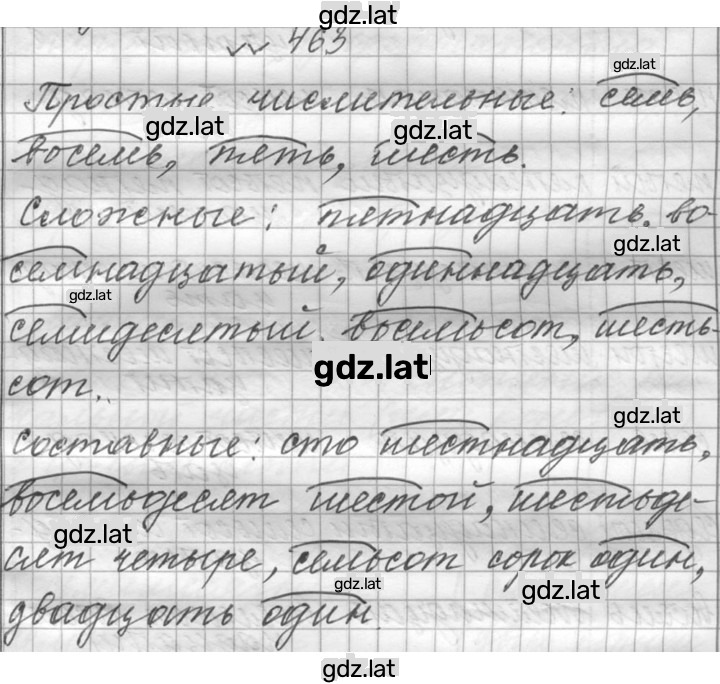 gdz.lat
463
Простые числительные: семь,
gdz.lat
восемь, пять, шесть.
gdz.lat
gdz.lat
Сложные: пятнадцать. во-
gdz.lat
семнадцатый, одиннадцать,
gdz.lat
семидесятый, восемьсот, шесть-
gdz.lat
сот.
gdz.lat
составные: сто шестнадцать,
восемьдесят шестой, шестьде-
gdz.lat
сят четыре, семьсот сорок один,
gdz.lat
gdz.lat
двадцать один.
gdz.lat